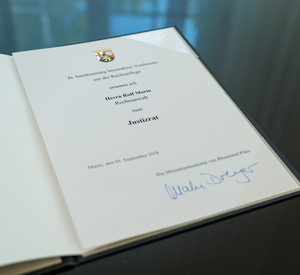 In Anerkennung besonderer Verdienste
um die Rechtspflege
ernenne ich
Herrn Rolf Mario
Rechtsanwalt
zum
Justizrat
Mainz, den 05. September 2018
Die Ministerpräsidentin von Rheinland-Pfalz
Malu Dreyer